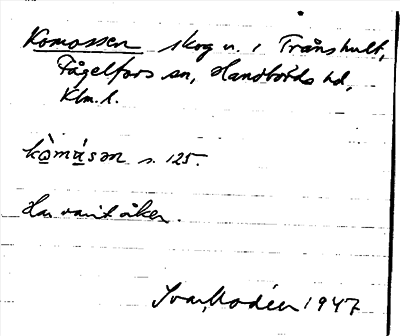 Komossen skog n. i Trånshult,
Fågelfors sn, Handbörds hd,
Klm. l.
kò̱má̱sən s. 125.
Har varit åker.
Ivar Modéer 1947